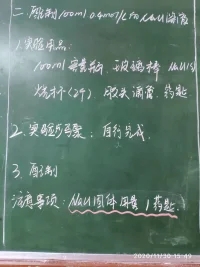 二. 配制100ml 0.4mol/L的NaCl溶液
1. 实验用品:
100ml容量瓶, 玻璃棒 NaCl(s)
烧杯(2个), 胶头滴管, 药匙
2. 实验步骤: 自行完成.
3. 配制
注意事项: NaCl固体用量 1药匙.
2020/11/30 15:43